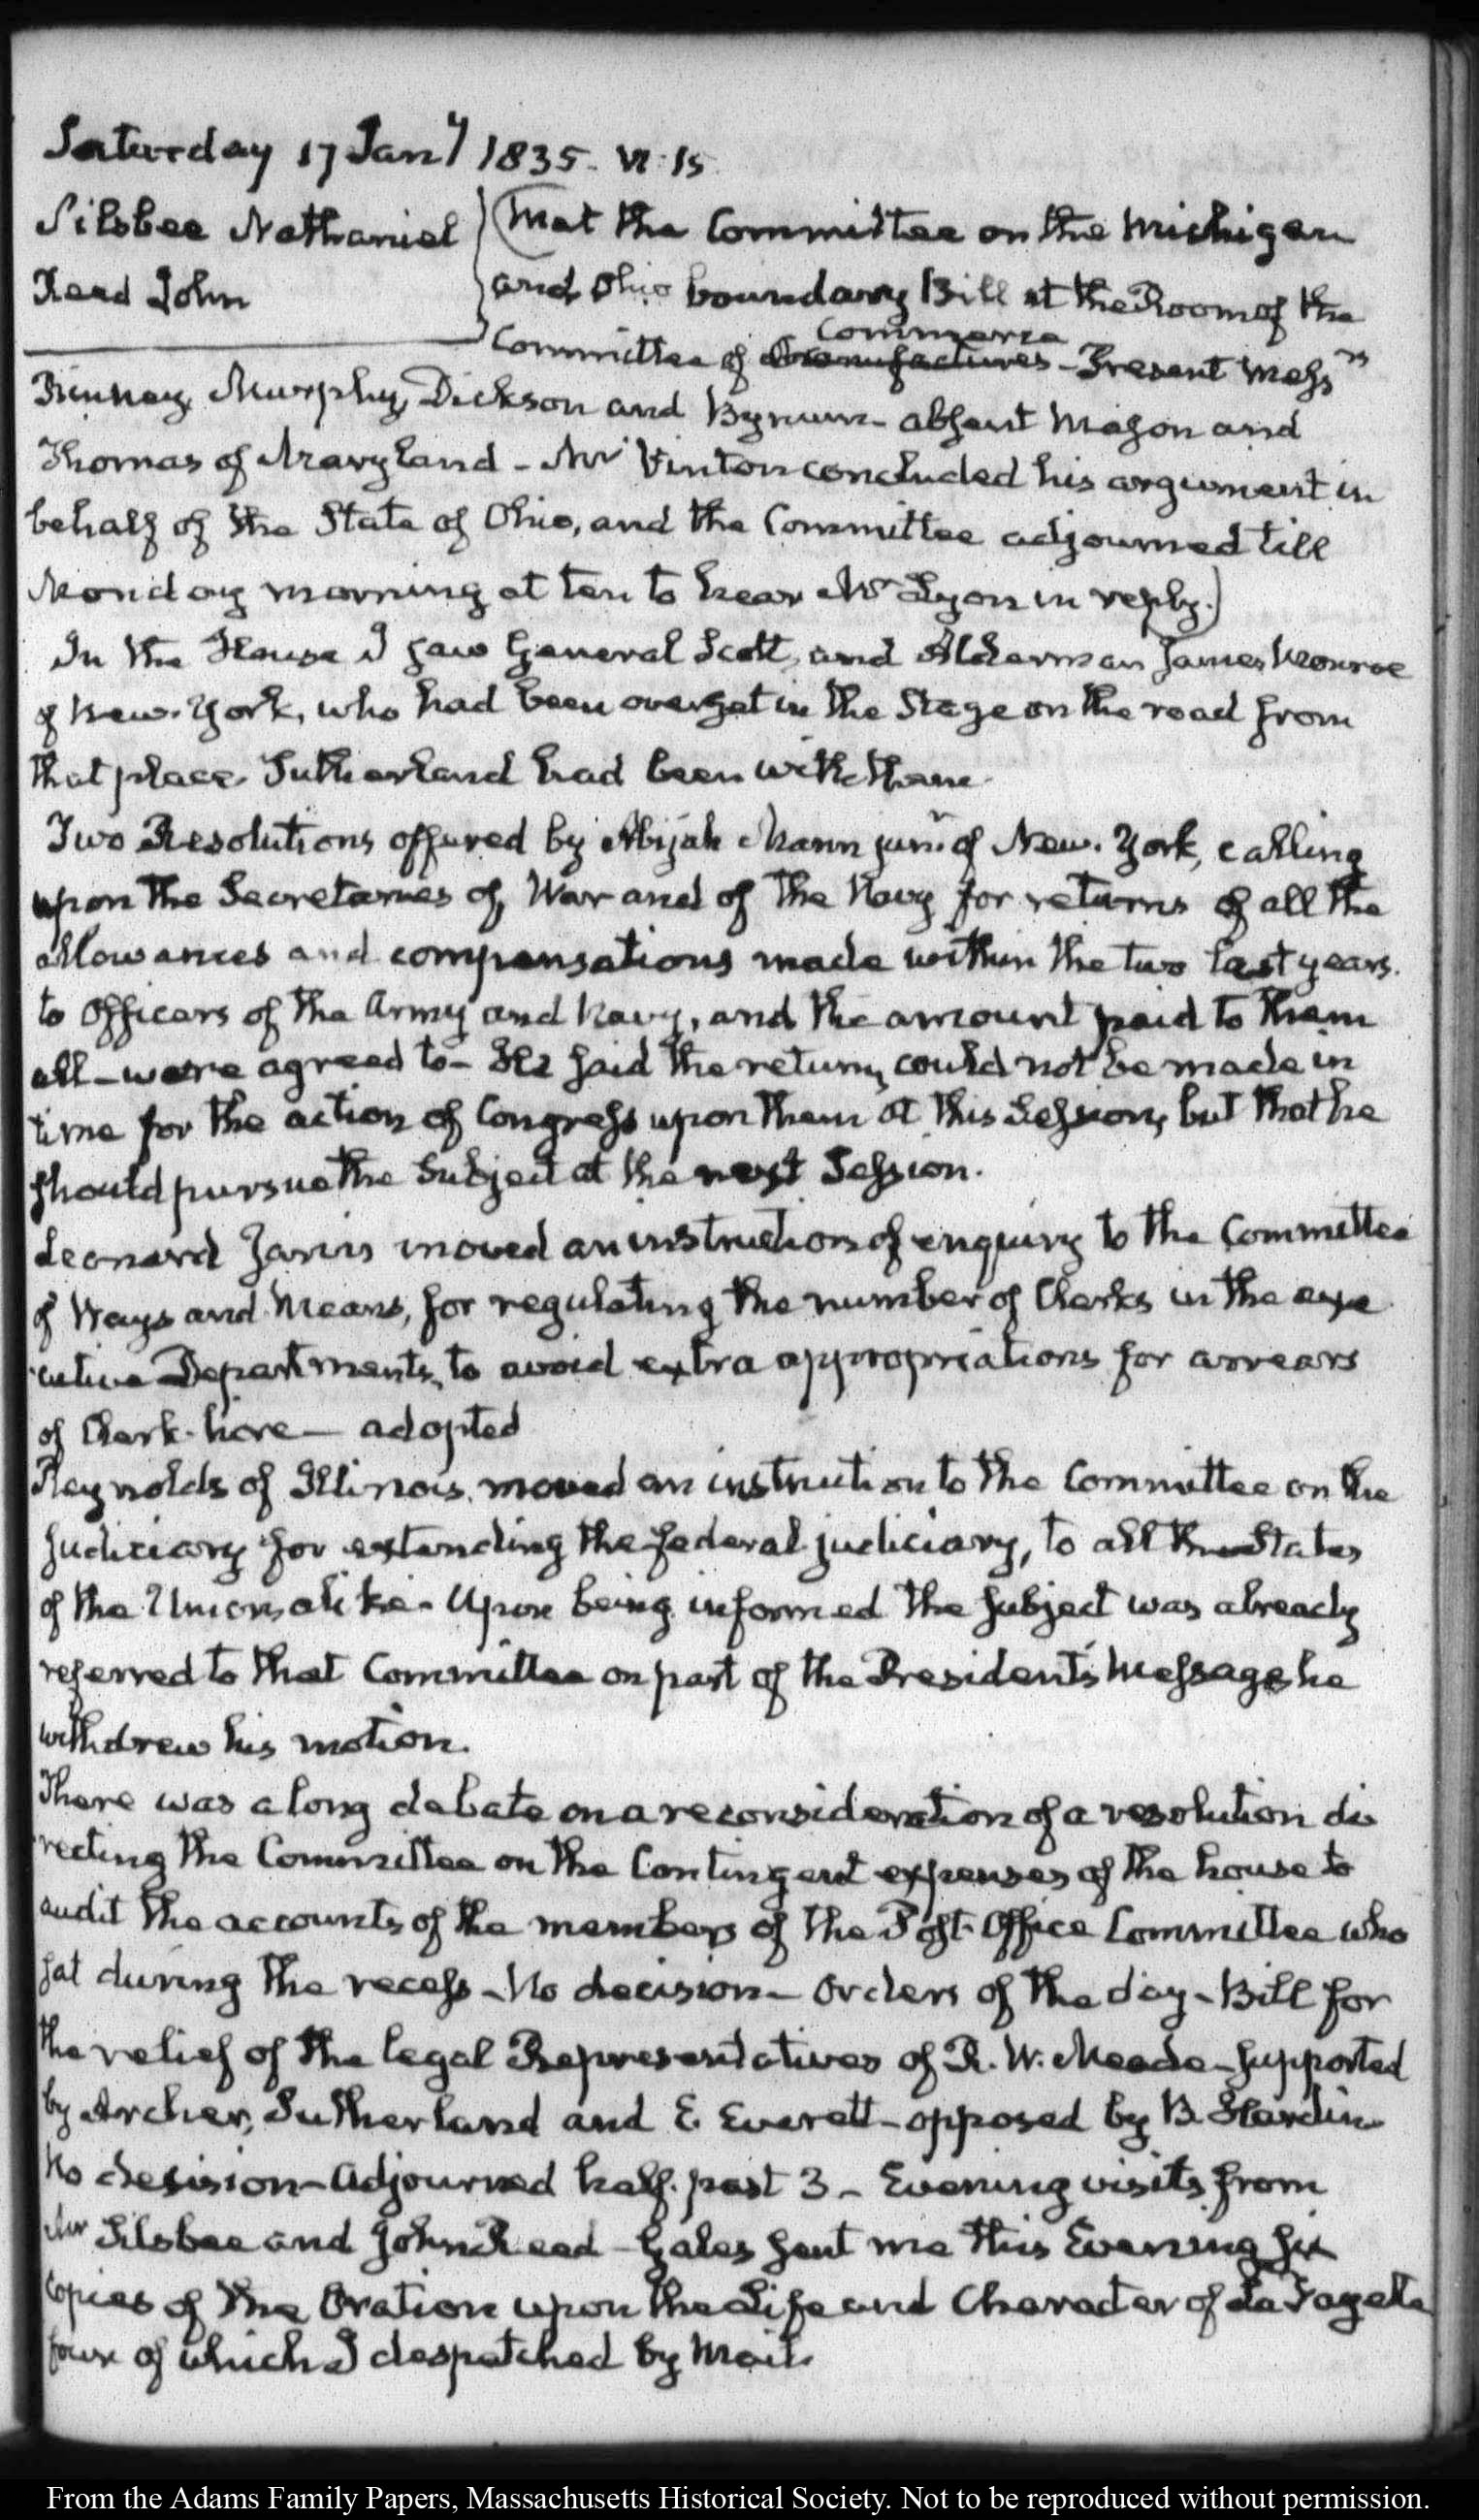 Saturday 17 Jany 1835. VI:15
Silsbee Nathaniel
Read John
Met the Committee on the Michigan
and Ohio boundary Bill at the Room of the
Commerce
Committee of Manufactures - Present Messrs
Kinnay, Murphy, Dickson and Bynum - absent Mason and
Thomas of Maryland - Mr Vinton concluded his argument in
behalf of the State of Ohio, and the Committee adjourned till
Monday morning at ten to hear Mr Lyon in reply.)
In the House I saw General Scott, and Alderman James Monroe
of New-York, who had been overset in the Stage on the road from
that place. Sutherland had been with them.
Two Resolutions offered by Abijah Mann junr of New-York, calling
upon the Secretaries of War and of the Navy for returns of all the
allowances and compensations made within the two last years.
to Officers of the Army and Navy, and the amount paid to them
all - were agreed to - He said the returns could not be made in
time for the action of Congress upon them at this Session, but that he
should pursue the Subject at the next Session.
Leonard Jarvis moved an instruction of enquiry to the Committee
of Ways and Means, for regulating the number of Clerks in the exe
cutive Departments, to avoid extra appropriations for arrears
of Clerk-hire - adopted
Reynolds of Illinois, moved an instruction to the Committee on the
Judiciary for extending the federal judiciary, to all the States
of the Union, alike - Upon being informed the subject was already
referred to that Committee on part of the President's Message he
withdrew his motion.
There was a long debate on a reconsideration of a resolution di
recting the Committee on the Contingent expenses of the house to
audit the accounts of the members of the Post-Office Committee who
sat during the recess - No decision - Orders of the day - Bill for
the relief of the legal Representatives of R. W. Meade - supported
by Archer, Sutherland and E Everett - opposed by B. Hardin
No decision - Adjourned half-past 3 - Evening visits from
Mr Silsbee and John Read - Gales sent me this Evening six
copies of the Oration upon the Life and Character of La Fayette
four of which I despatched by Mail.
From the Adams Family Papers, Massachusetts Historical Society. Not to be reproduced without permission.